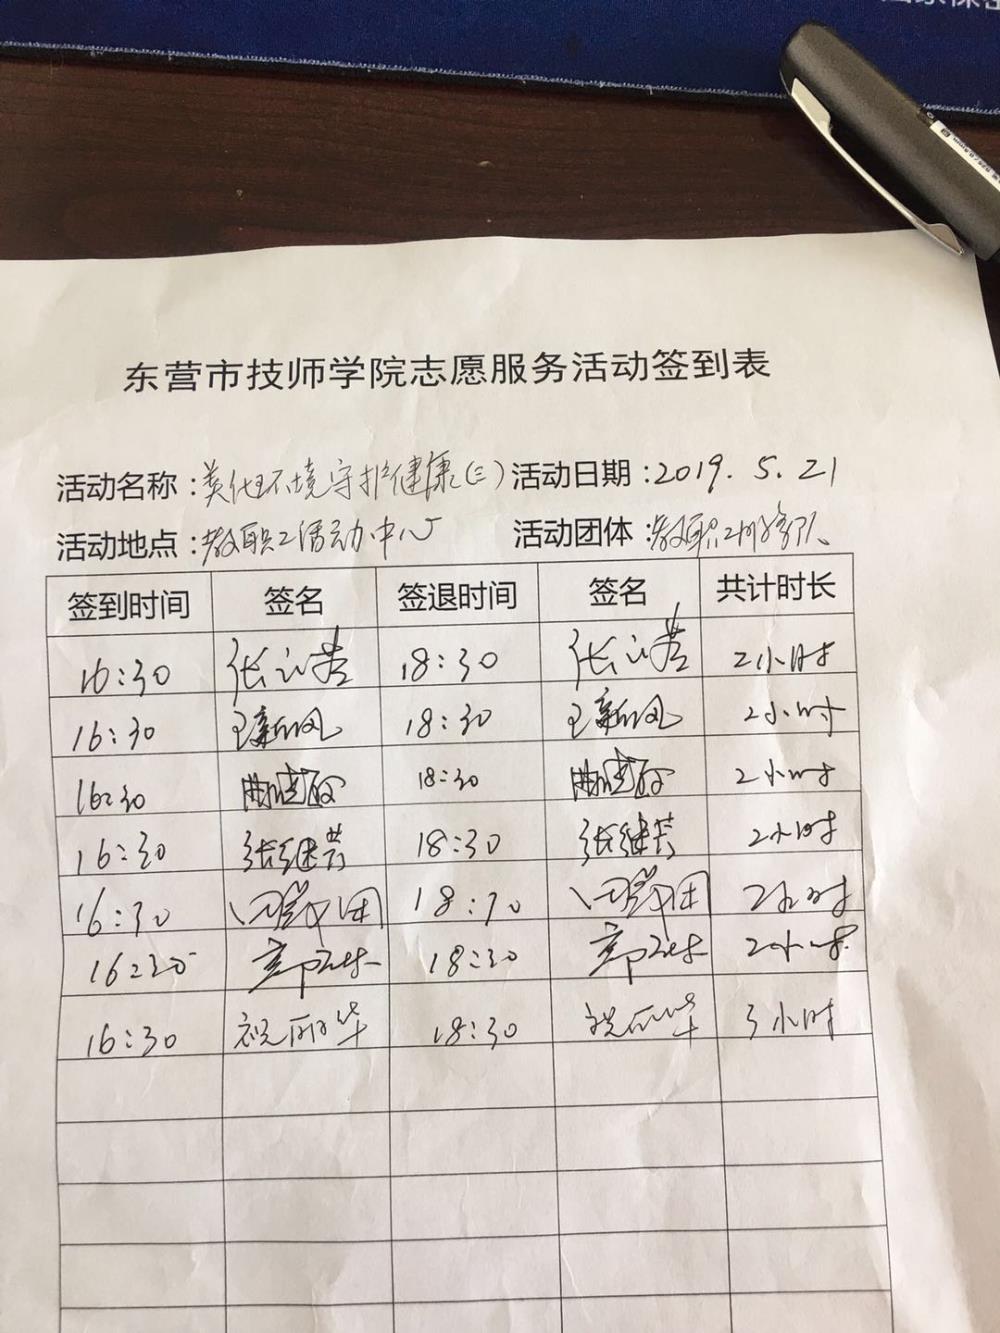 东营市技师学院志愿服务活动签到表
活动名称：美化环境守护健康(三) 活动日期：2019.5.21
活动地点：教职工活动中心 活动团体：教职工
签到时间 签名 签退时间 签名 共计时长
16:30 18:30 2小时
16:30 王新凤 18:30 王新凤 2小时
16:30 18:30 2小时
16:30 张继芳 18:30 张继芳 2小时
16:30 18:30 2小时
16:30 18:30 2小时
16:30 祝丽华 18:30 祝丽华 3小时